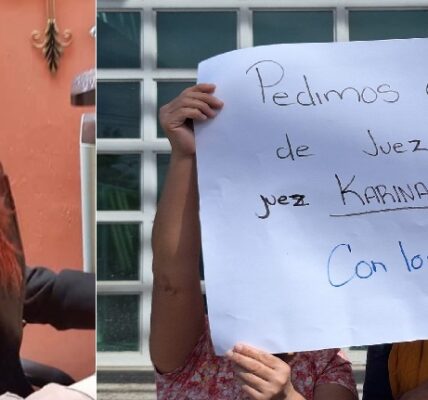 Pedimos
de Juez
juez KARINA
Con lo